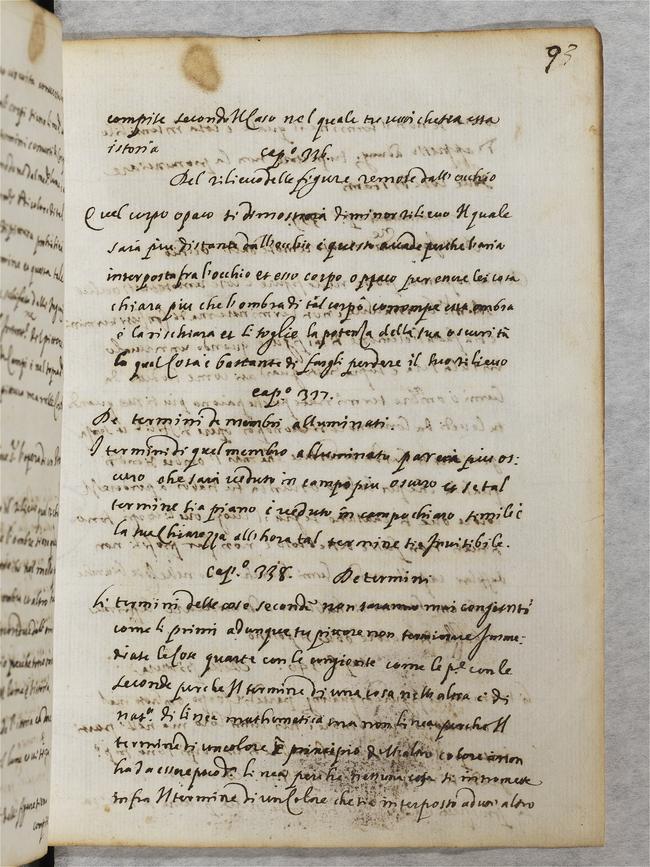 93
compiste secondo Il Caso nel quale tu vuoi che stia essa
istoria
cap.º 336.
Del rilievo delle figure remote dall'occhio
Quel corpo opaco si dimostrará di minor rilievo Il quale
sará piu distante dall'occhio e questo accade perche l'aria
interposta fra l'occhio et esso corpo opaco per envre lei cosa
chiara piu che l'ombra di tal corpo corrompe essa ombra
e la rischiara et li toglie la potenza della sua oscuritá
la qual Cosa é bastante di fargli perdere il suo rilievo
cap.º 337.
De termini de membri alluminati
I termini di quel membro alluminato parerá piu os:
curo che sará veduto in campo piu oscuro et se tal
termine sia piano é veduto in campo chiaro simile
la sua Chiarezza all'hora tal termine sia Invisibile.
Cap.º 338. De termini
Li termini delle cose seconde non saranno mai congionti
come li primi adunque tu pittore non terminare Imme-
diate le Cose quarte con le come le p.e con le
seconde perche Il termine di una cosa nella altra é di
nat.ª di linea mathematica ma non linea perche Il
termine di un colore é principio dell'altro colore é non
ha da essere peró d.ª linea perche nessuna cosa si intromette
infra Il termine di un Colore che sia interposto ad un altro